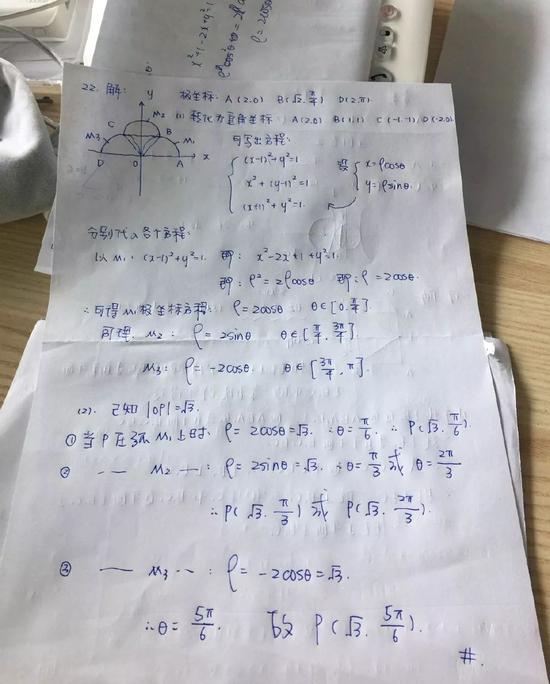 x²+1-2x+y²=1
ρ=2cosθ
22. 解: 极坐标: A(2.0) B(√2. π/4) D(2.π).
(1) 转化为直角坐标 A(2.0) B(1,1) C(-1,1) D(-2.0)
y
M₂
C B
M₃ M₁
D O A x
可写出方程:
{ (x-1)²+y²=1
x²+(y-1)²=1
(x+1)²+y²=1.
{ x=ρcosθ
y=ρsinθ.
分别代入各个方程:
以M₁: (x-1)²+y²=1. 即: x²-2x+1+y²=1.
即: ρ²=2ρcosθ 即: ρ=2cosθ.
∴可得M₁极坐标方程: ρ=2cosθ θ∈[0.π/4].
同理. M₂: ρ=2sinθ θ∈[π/4. 3π/4].
M₃: ρ=-2cosθ. θ∈[3π/4. π].
(2). 已知|OP|=√3.
① 当P在弧M₁上时. ρ=2cosθ=√3. ∴θ=π/6. ∴P(√3. π/6).
② — — M₂ —: ρ=2sinθ=√3. ∴θ=π/3 或 θ=2π/3
∴P(√3. π/3) 或 P(√3. 2π/3).
③ — M₃ --: ρ=-2cosθ=√3.
∴θ=5π/6. 故 P(√3. 5π/6).
#.